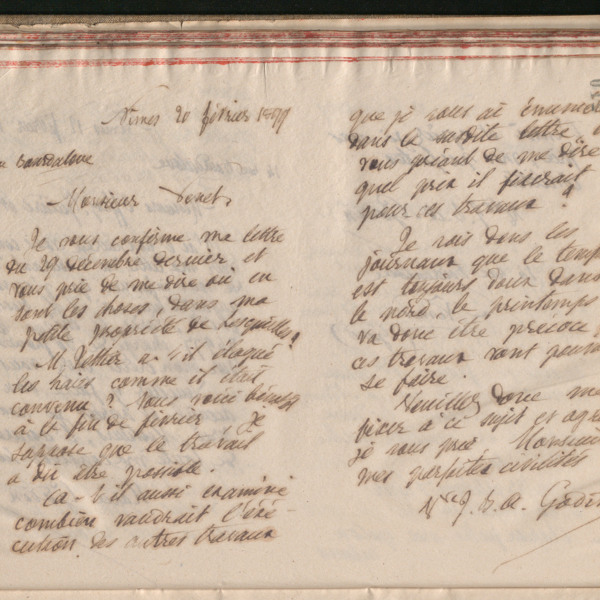 Nimes 20 février 1889
Monsieur Donet,
Je vous confirme ma lettre
du 29 décembre dernier et
vous prie de me dire où en
sont les choses, dans ma
petite propriété de Lesquielles?
M. a-t-il élagué
les haies comme il était
convenu? Nous voici bientôt
à la fin de février Je
suppose que le travail
a dû être possible.
La-t-il aussi examiné
combien vaudrait l'exé-
cution des autres travaux
que je vous ai
dans la susdite lettre
vous priant de me dire
quel prix il
pour ces travaux?
Je vois dans les
journaux que le temps
est toujours doux dans
le nord, le printemps
va donc être précoce
ces travaux vont pouvoir
se faire.
Veuillez donc me
fixer à ce sujet et
je vous prie Monsieur
mes parfaites civilités
Godin